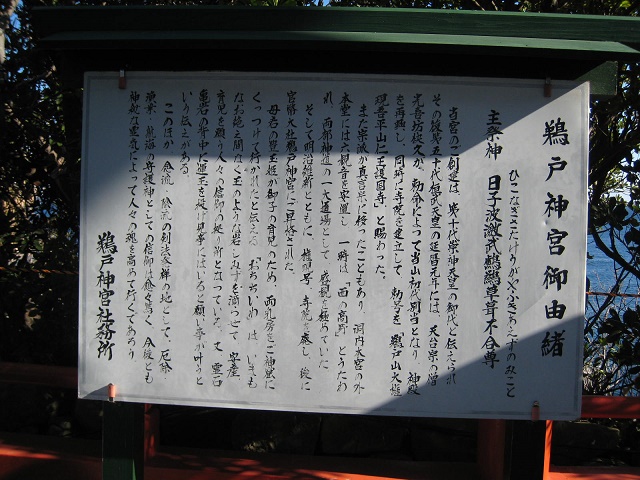 鵜戸神宮御由緒
ひこなぎさたけうがやふきあえずのみこと
主祭神 日子波瀲武鸕鷀草葺不合尊
当宮のご創建は、第十代崇神天皇の御代と伝えられ
その後第五十代桓武天皇の延暦元年には、天台宗の僧
光喜坊快久が、勅命によって当山初代別当となり、神殿
を再興し、同時に寺院を建立して、勅号を「鵜戸山大権
現吾平山仁王護国寺」と賜わった。
また宗派が真言宗に移ったこともあり、洞内本宮の外
本堂には六観音を安置し、一時は「西の高野」とうたわ
れ、両部神道の一大道場として、盛観を極めていた。
そして明治維新とともに、権現号・寺院を廃し、後に
官幣大社鵜戸神宮に昇格された。
母君の豊玉姫が御子の育児のため、両乳房をご神窟に
くっつけて行かれたと伝える「おちちいわ」は、いまも
なお絶え間なく玉のような岩しみずを滴らせて、安産・
育児を願う人々の信仰の拠り所となっている。又、霊石
亀石の背中に運玉を投げ見事にはいると願い事が叶うと
いう伝えがある。
このほか、念流、陰流の剣法発祥の地として、厄除
漁業・航海の守護神としての信仰は愈々篤く、今後とも
神秘な霊気によって人々の魂を高めて行くであろう
鵜戸神宮社務所